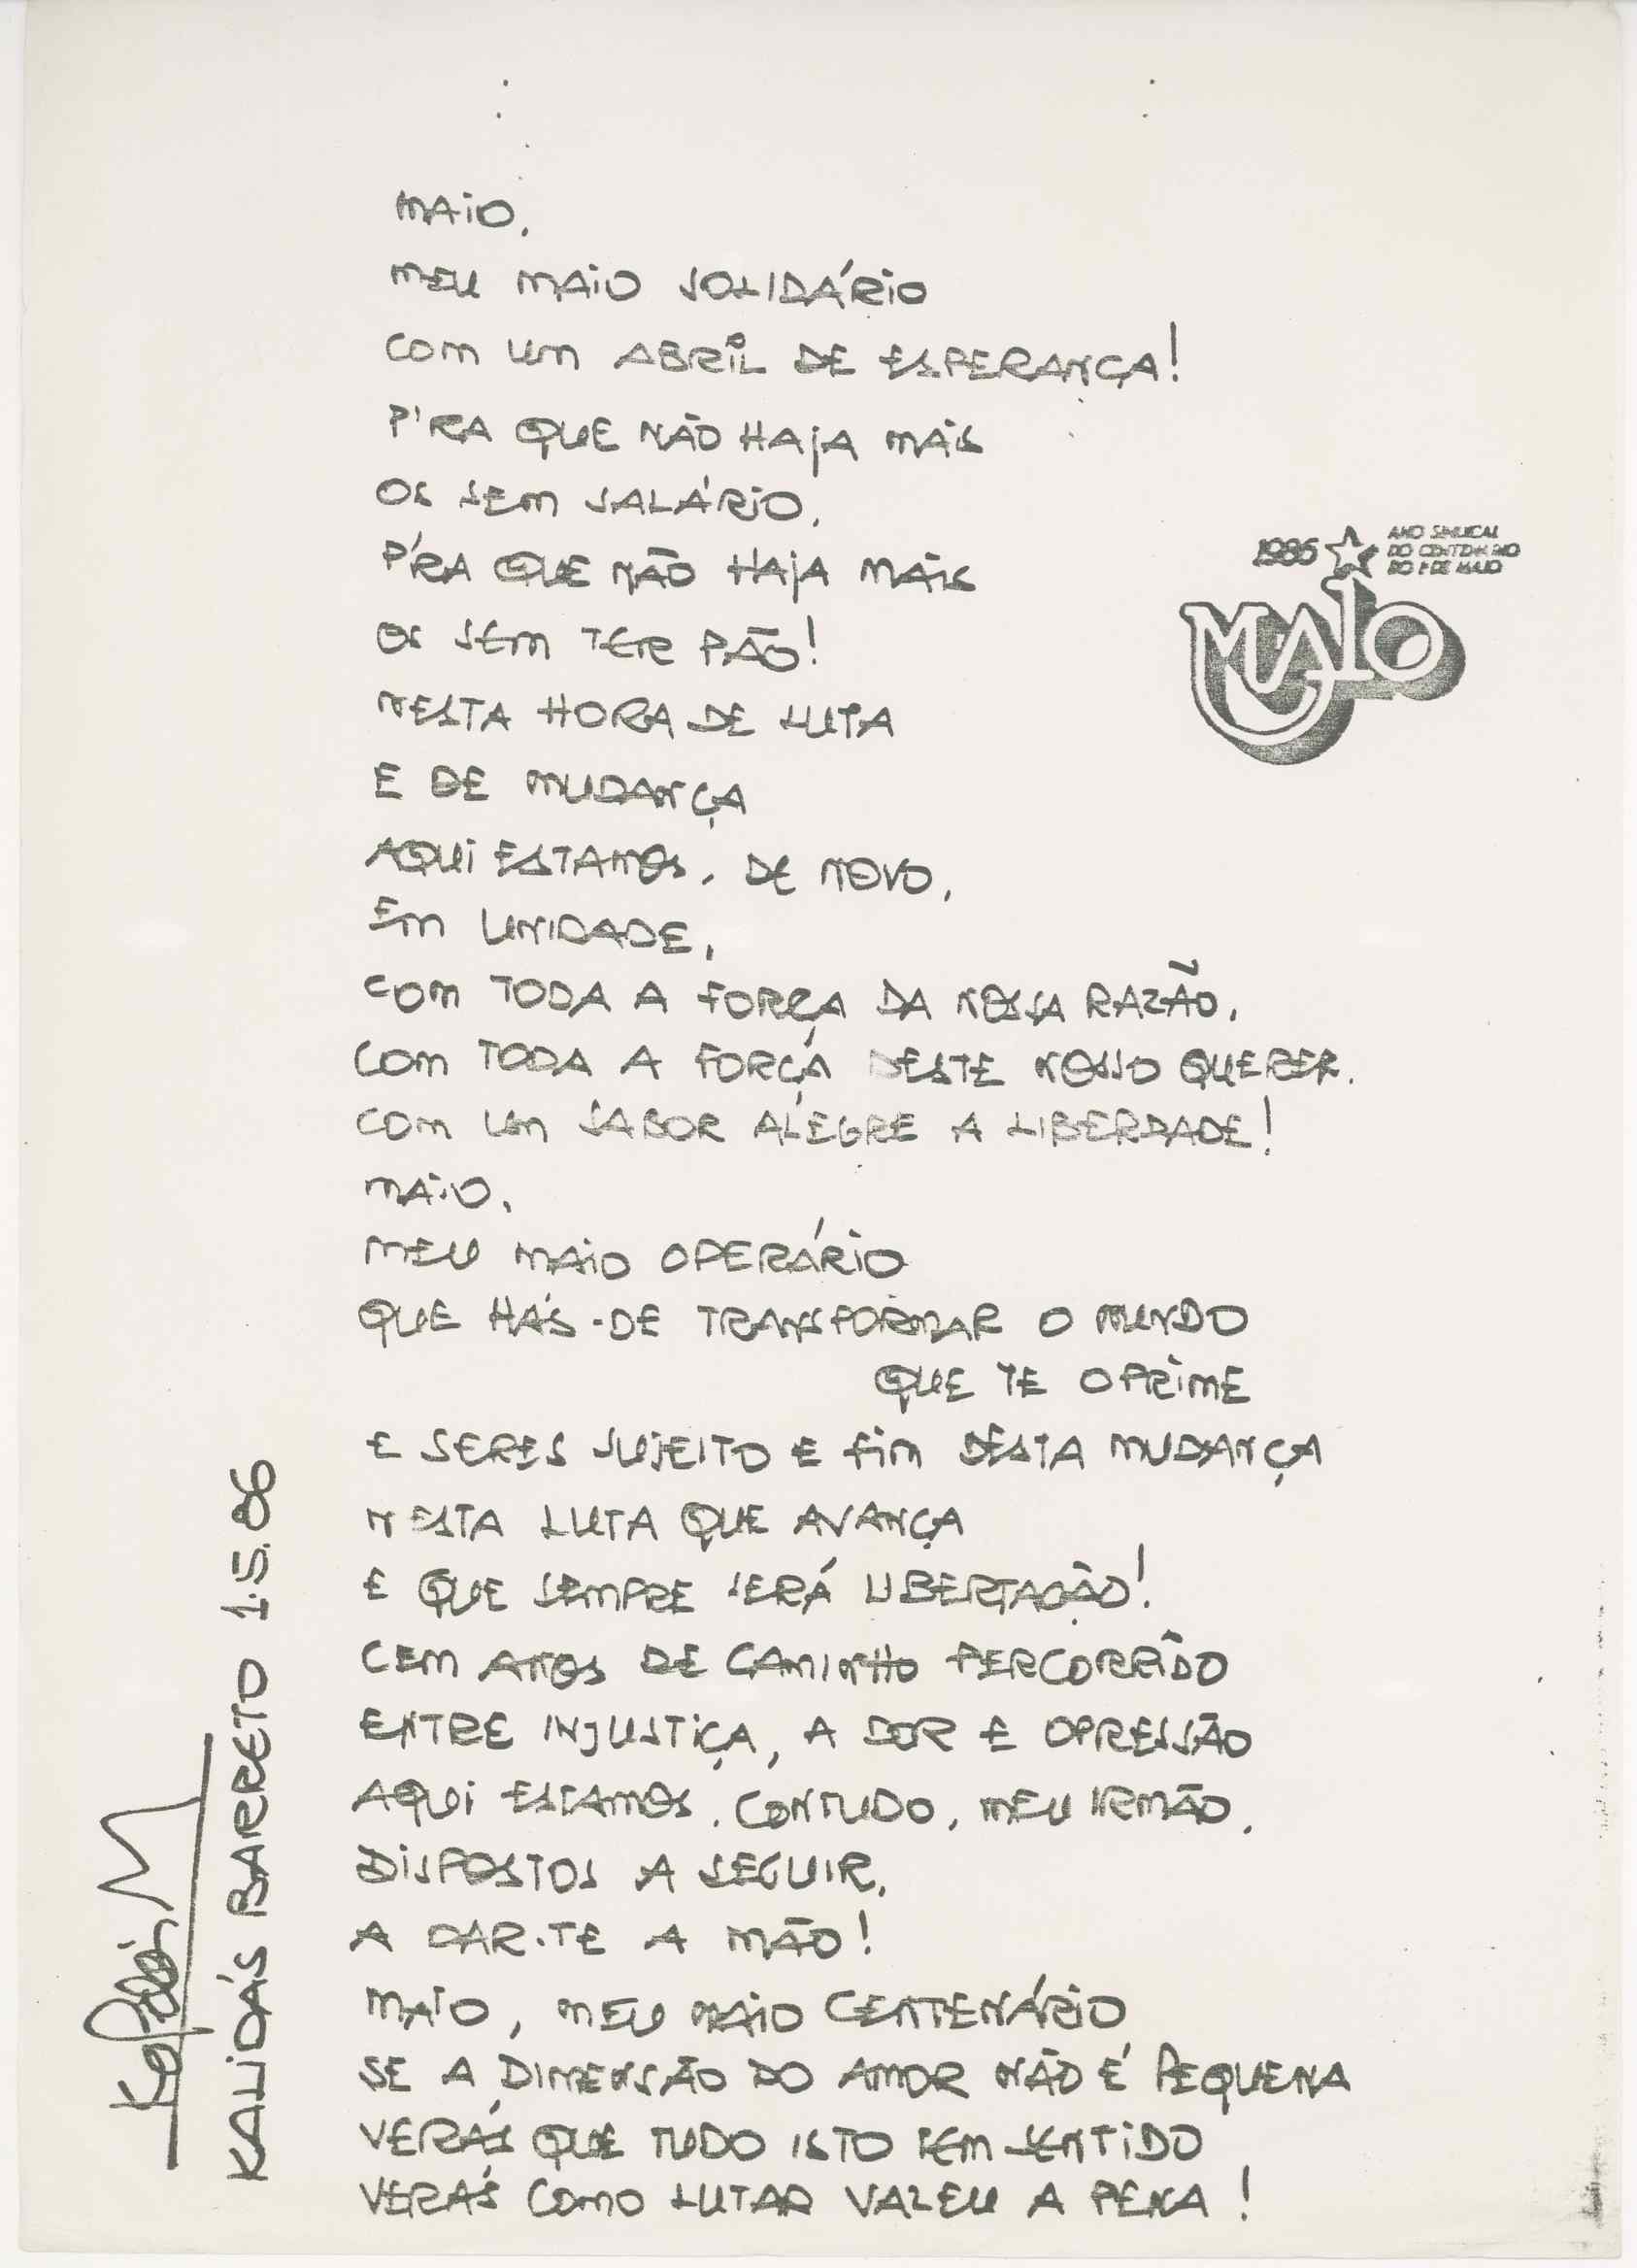 MAIO,
MEU MAIO SOLIDÁRIO
COM UM ABRIL DE ESPERANÇA!
P'RA QUE NÃO HAJA MAIS
OS SEM SALÁRIO,
P'RA QUE NÃO HAJA MAIS
OS SEM TER PÃO!
NESTA HORA DE LUTA
E DE MUDANÇA
AQUI ESTAMOS, DE NOVO,
EM UNIDADE,
COM TODA A FORÇA DA NOSSA RAZÃO,
COM TODA A FORÇA DESTE NOSSO QUERER,
COM UM SABOR ALEGRE A LIBERDADE!
MAIO,
MEU MAIO OPERÁRIO
QUE HÁS-DE TRANSFORMAR O MUNDO
QUE TE OPRIME
E SERES SUJEITO E FIM DESTA MUDANÇA
NESTA LUTA QUE AVANÇA
E QUE SEMPRE SERÁ LIBERTAÇÃO!
CEM ANOS DE CAMINHO PERCORRIDO
ENTRE INJUSTIÇA, A DOR E OPRESSÃO
AQUI ESTAMOS, CONTUDO, MEU IRMÃO,
DISPOSTOS A SEGUIR,
A DAR-TE A MÃO!
MAIO, MEU MAIO CENTENÁRIO
SE A DIMENSÃO DO AMOR NÃO É PEQUENA
VERÁS QUE TUDO ISTO TEM SENTIDO
VERÁS COMO LUTAR VALEU A PENA!
1986 ANO SINDICAL
DO CENTENÁRIO
DO 1º DE MAIO
MAIO
KALIDÁS BARRETO 1.5.86